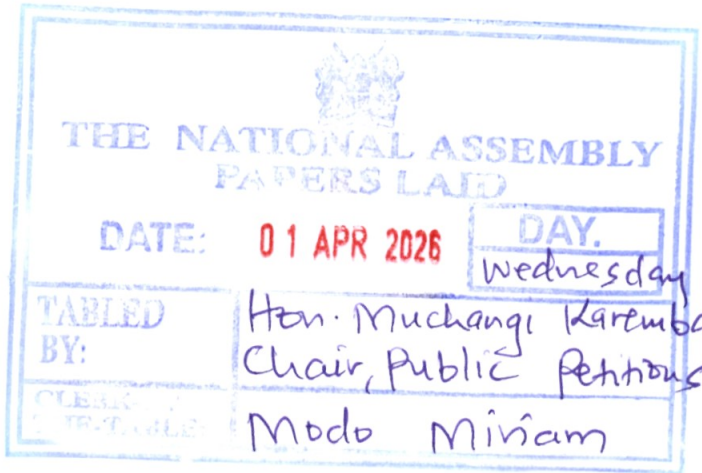 THE NATIONAL ASSEMBLY
PAPERS LAID
DATE: 01 APR 2026 DAY.
Wednesday
TABLED BY: Hon. Muchangi Karemba
Chair, Public Petitions
CLERK-AT THE-TABLE: Modo Miriam